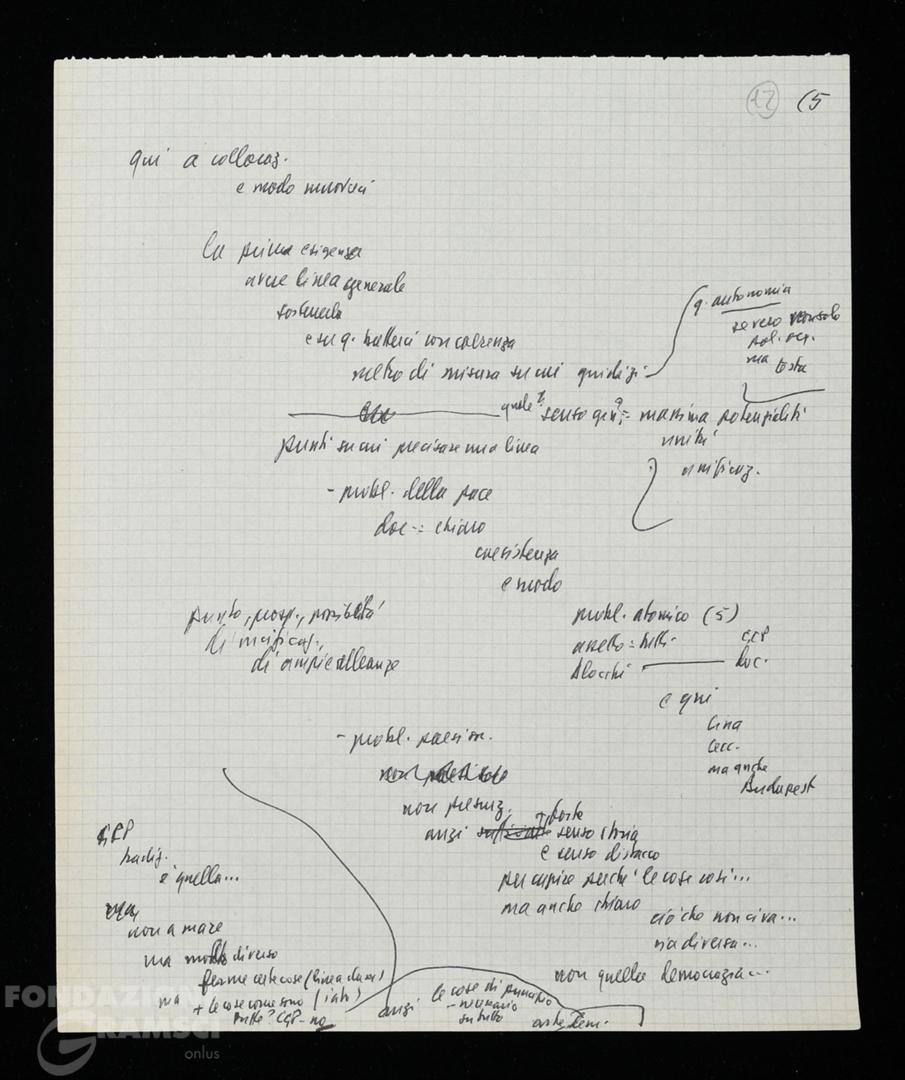 22 (5
qui a collocaz.
e modo muoverci
la prima esigenza
avere linea generale
sostenerla
e su q. batterci con coerenza
metro di misura su cui giudizi
q. autonomia
se vero non solo
ma
quale? senso gen.? = massima potenzialità
unità
unificaz.
punti su cui precisare ns linea
- probl. della pace
doc = chiaro
coesistenza
e modo
punto, prosp., possibilità
di unificaz.
di ampie alleanze
probl. atomico (5)
= tutti
blocchi — doc.
e qui
Cina
Cecc.
ma anche
Budapest
- probl. paesi
non presunz.
anzi forte senso storia
e senso distacco
per capire perché le cose così...
ma anche chiaro
ciò che non ci va...
via diversa...
non quella democrazia...
tradiz.
è quella...
non amare
ma molto diverso
ferme certe cose (linea
ma + le cose come sono
tutte? no
anzi le cose di principio
- necessario
su tutto
FONDAZIONE
GRAMSCI
onlus